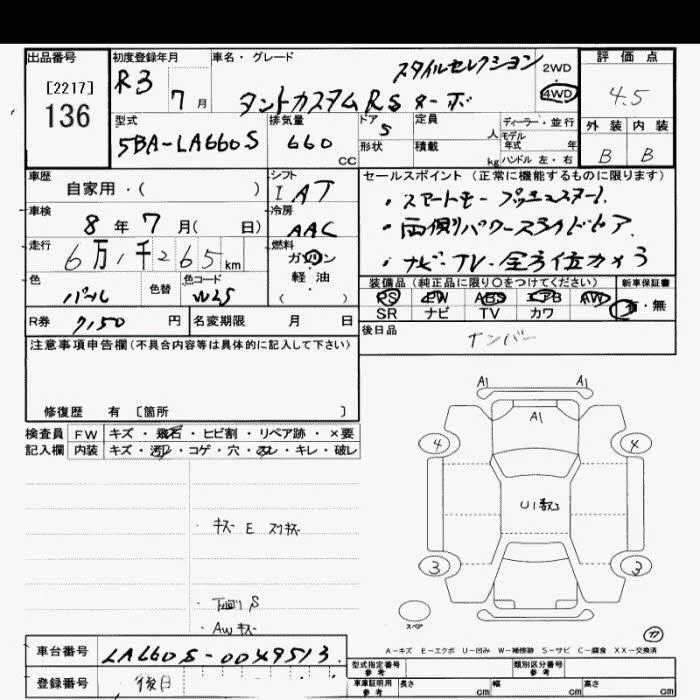 出品番号
[2217]
136
初度登録年月
R3 7月
車名・グレード
スタイルセレクション
タントカスタムRSターボ
2WD
4WD
評価点
4.5
外装 内装
B B
型式
5BA-LA660S
排気量
660 CC
ドア
5
形状
定員 人
積載 kg
ディーラー・並行
モデル年式 年
ハンドル 左・右
車歴
自家用・( )
シフト
I AT
車検
8年7月( 日)
冷房
AAC
走行
6万1千265km
燃料
ガソリン
軽油
( )
色
パール
色替
色コード
W25
セールスポイント(正常に機能するものに限ります)
・スマートキー プッシュスタート.
・両側パワースライドドア.
・ナビ. TV. 全方位カメラ
装備品(純正品に限り○をつけてください)
PS PW ABS エアB AW
SR ナビ TV カワ
新車保証書
有・無
R券 7,150円
名変期限 月 日
後日品
ナンバー
注意事項申告欄(不具合内容等は具体的に記入して下さい)
修復歴 有 [箇所 ]
検査員記入欄
FW キズ・飛石・ヒビ割・リペア跡・×要
内装 キズ・汚れ・コゲ・穴・スレ・キレ・破レ
・キズ E スリキズ
・下廻り S
・AW キズ
A1 A1
A1
4 4
U1数コ
3 3
スペア
77
A-キズ E-エクボ U-凹み W-補修跡 S-サビ C-腐食 XX-交換済
車台番号
LA660S-0049513
登録番号
後日
型式指定番号 参考
類別区分番号 参考
車庫証明用 参考
長さ cm 幅 cm 高さ cm